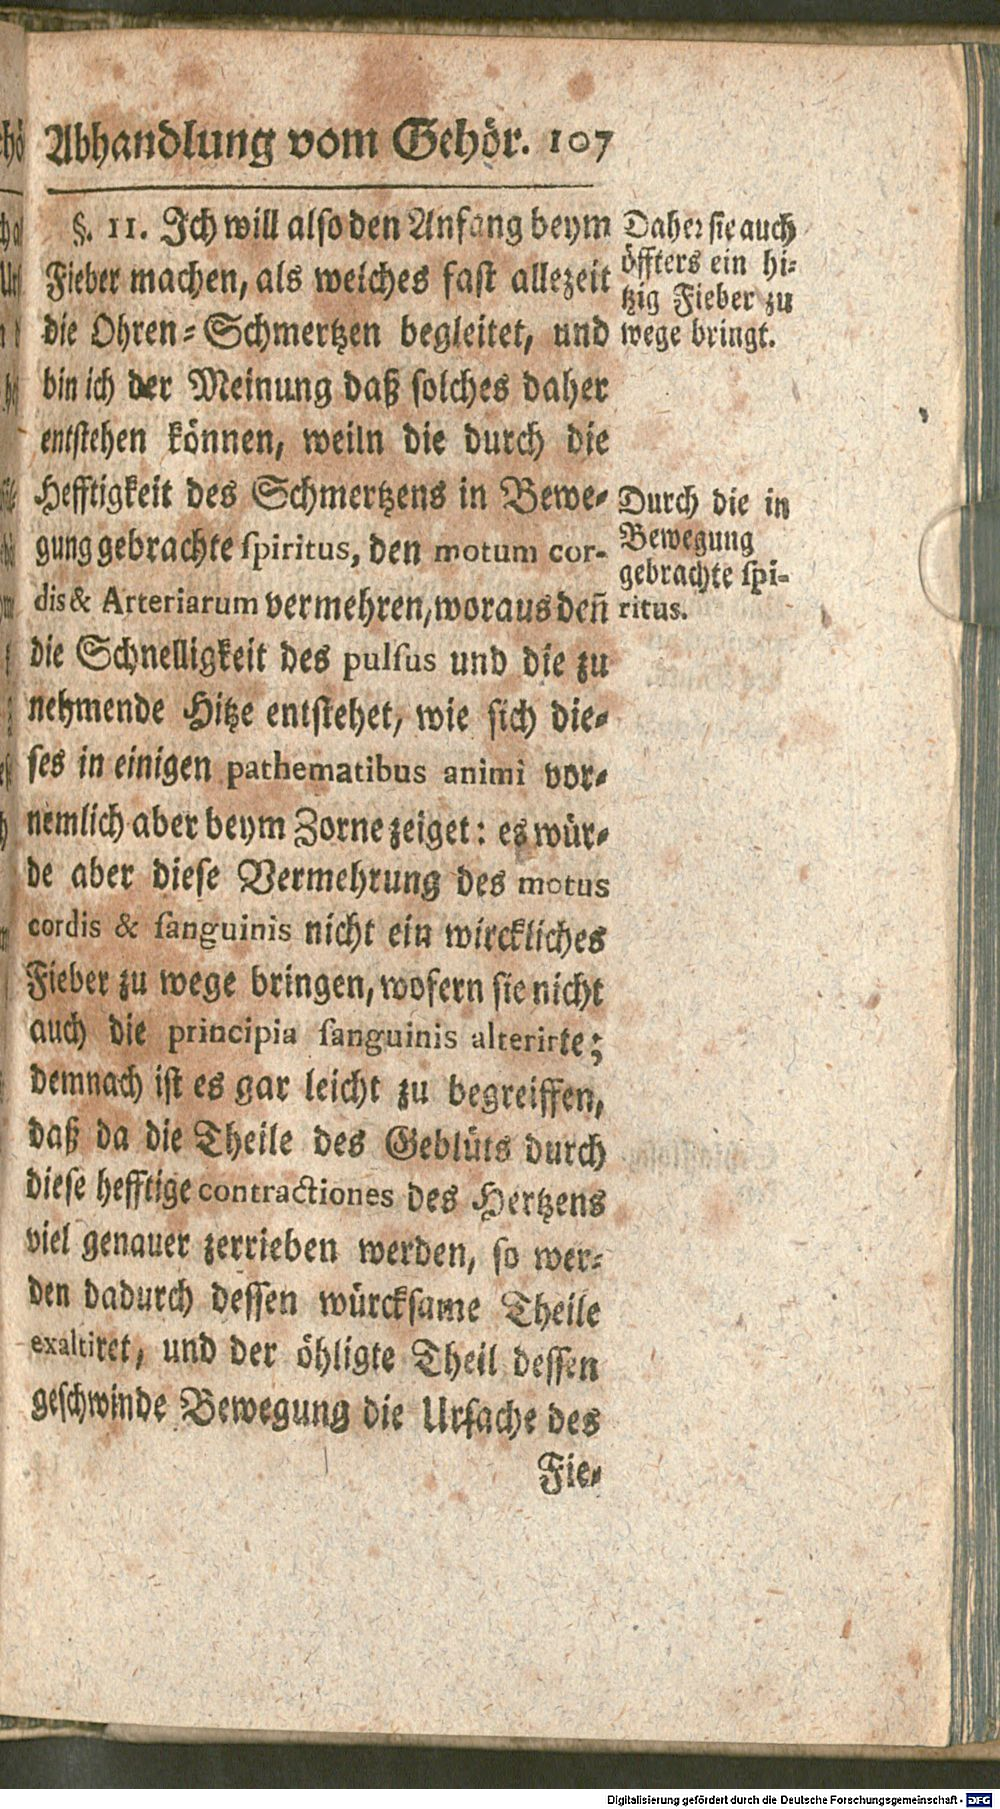 Abhandlung vom Gehör. 107
§. 11. Ich will also den Anfang beym
Fieber machen, als welches fast allezeit
die Ohren-Schmertzen begleitet, und
bin ich der Meinung daß solches daher
entstehen können, weiln die durch die
Hefftigkeit des Schmertzens in Bewe-
gung gebrachte spiritus, den motum cor-
dis & Arteriarum vermehren, woraus deñ
die Schnelligkeit des pulsus und die zu
nehmende Hitze entstehet, wie sich die-
ses in einigen pathematibus animi vor-
nemlich aber beym Zorne zeiget: es wür-
de aber diese Vermehrung des motus
cordis & sanguinis nicht ein wirckliches
Fieber zu wege bringen, wofern sie nicht
auch die principia sanguinis alterirte;
demnach ist es gar leicht zu begreiffen,
daß da die Theile des Geblüts durch
diese hefftige contractiones des Hertzens
viel genauer zerrieben werden, so wer-
den dadurch dessen würcksame Theile
exaltiret, und der öhligte Theil dessen
geschwinde Bewegung die Ursache des
Fie-
Daher sie auch
öffters ein hi-
tzig Fieber zu
wege bringt.
Durch die in
Bewegung
gebrachte spi-
ritus.
Digitalisierung gefördert durch die Deutsche Forschungsgemeinschaft - DFG